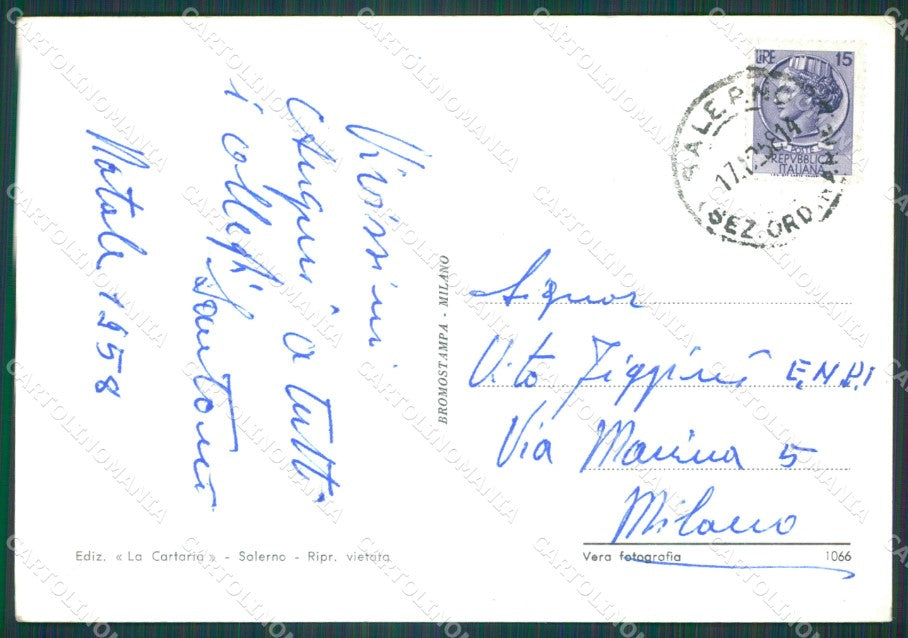 Vivissimi
Auguri a tutti
i colleghi
Santoni
Natale 1958
Ediz. « La Cartaria » - Salerno - Ripr. vietata
BROMOSTAMPA - MILANO
LIRE 15
POSTE
REPVBBLICA
ITALIANA
SALERNO
17.12.58 14
(SEZ. ORD.
Signor
Vito Figgini E.N.P.I
Via Marina 5
Milano
Vera fotografia 1066
CARTOLINOMANIA